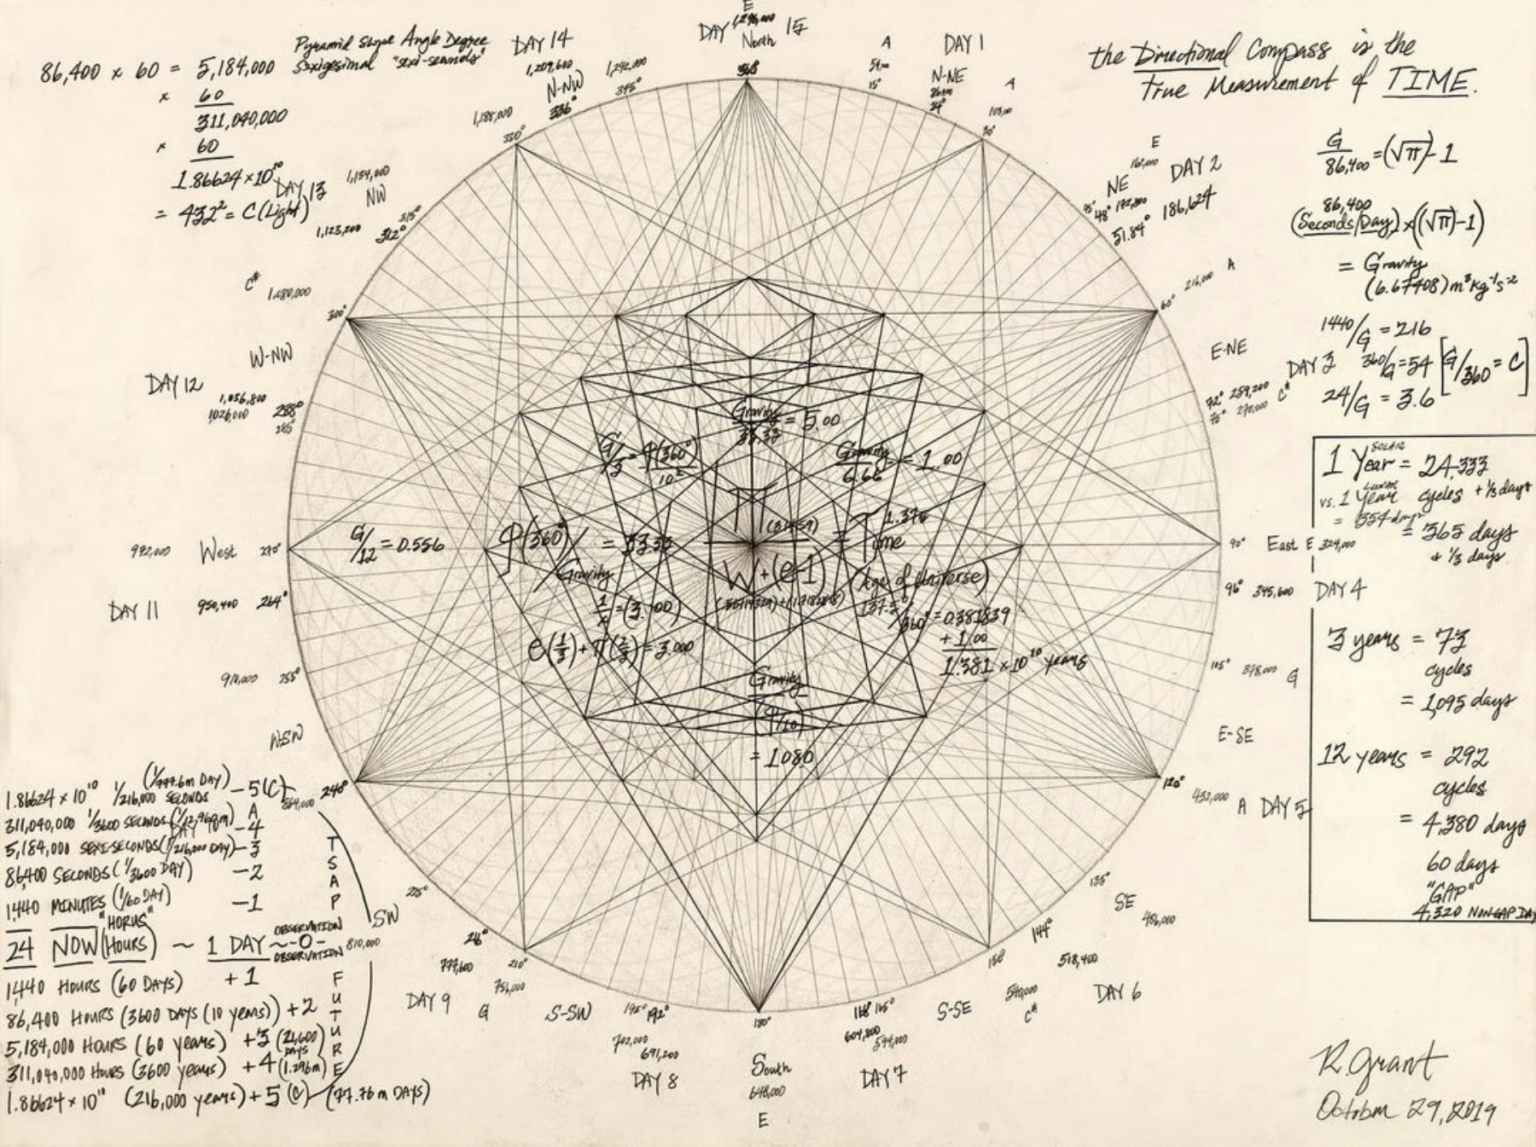 86,400 x 60 = 5,184,000
x 60
311,040,000
x 60
1.86624 x 10¹⁰
= 432² = C (Light)
Pyramid Slope Angle Degree
Sexigesimal "sexi-seconds"
DAY 14
1,209,600
N-NW
336°
1,242,000
345°
1,188,000
330°
E
DAY 1,296,000 15
North
360°
A
54m
15°
DAY 1
N-NE
24°
A
30°
the Directional Compass is the
True Measurement of TIME.
DAY 13
1,134,000
NW
315°
1,123,200
312°
C#
1,080,000
300°
E
162,000
DAY 2
NE
45°
48° 172,800
186,624
51.84°
216,000 A
60°
G/86,400 = (√π)-1
86,400
(Seconds/Day) x ((√π)-1)
= Gravity
(6.67408) m³kg⁻¹s⁻²
1440/G = 216
360/G = 54 [G/360 = C]
24/G = 3.6
E-NE
DAY 3
72° 259,200 C#
75° 270,000
W-NW
DAY 12
1,036,800 288°
1,026,000 285°
Gravity/33.33 = 5.00
G/3 = φ(360°)/10²
Gravity/6.66 = 1.00
π (3.14159)
W + (e-1)
= Time 1.375
(Age of Universe)
137.5°/360° = 0.381939
+ 1.00
1.381 x 10¹⁰ years
φ(360°)/Gravity = 33.33
G/12 = 0.556
e(1/3) + π(2/3) = 3.000
Gravity
(φ/10)
= 1080
972,000 West 270°
DAY 11 950,400 264°
918,000 255°
W-SW
1 SOLAR Year = 24.333
vs. 1 LUNAR Year cycles + 1/3 days
= 354 days
= 365 days
+ 1/3 days
3 years = 73
cycles
= 1,095 days
12 years = 292
cycles
= 4,380 days
60 days
"GAP"
4,320 NON GAP DAYS
90° East E 324,000
96° 345,600 DAY 4
105° 378,000 G
E-SE
120°
432,000 A DAY 5
135°
SE
486,000
144°
518,400
DAY 6
150°
540,000
C#
S-SE
168° 165°
604,800
594,000
DAY 7
180°
South
648,000
E
195° 192°
702,000
691,200
DAY 8
S-SW
210°
756,000
G
DAY 9
777,600
225°
SW
810,000
240°
864,000
1.86624 x 10¹⁰ 1/216,000 SECONDS (1/777.6m DAY) -5 (C)
311,040,000 1/3600 SECONDS (1/12.960m) -4
A
5,184,000 SEXI-SECONDS (1/216,000 DAY) -3
86,400 SECONDS (1/3600 DAY) -2
1,440 MINUTES (1/60 DAY) -1
"HORUS"
24 NOW (HOURS) ~ 1 DAY ~ -0-
OBSERVATION
OBSERVATION
1,440 HOURS (60 DAYS) +1
86,400 HOURS (3600 DAYS (10 years)) +2
5,184,000 HOURS (60 years) +3 (21,600 DAYS)
311,040,000 HOURS (3600 years) +4 (1.296m)
1.86624 x 10¹⁰ (216,000 years) +5 (C) (77.76 m DAYS)
TSAP
FUTURE
R. Grant
October 29, 2019